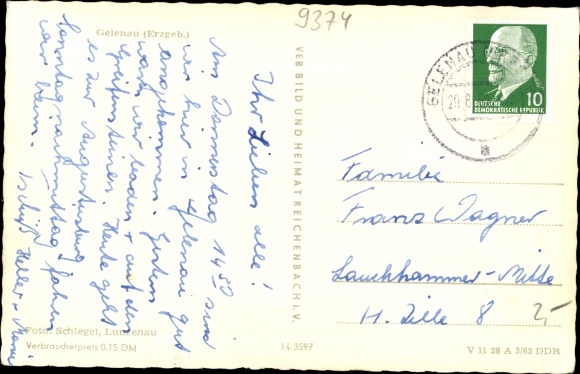 9374
Gelenau (Erzgeb.)
Ihr Lieben alle!
Am Donnerstag 14⁵⁰ sind
wir hier in Gelenau gut
angekommen. Gestern
waren wir baden + auf den
Greifensteinen. Heute geht
es zur Augustusburg
Sonntagnachmittag fahren
wir heim. Tschüß Heller + Mami
VEB BILD UND HEIMAT REICHENBACH I. V.
GELENAU
29.8
a
DEUTSCHE
DEMOKRATISCHE REPUBLIK
10
Familie
Franz Wagner
Lauchhammer-Mitte
H. Zille 8
2,-
Foto: Schlegel, Lunzenau
Verbraucherpreis 0,15 DM
14-3597
V 11 28 A 3/62 DDR